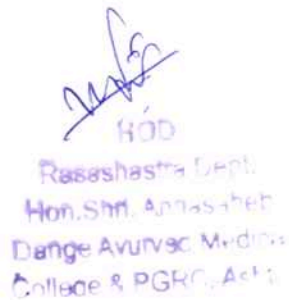 HOD
Rasashastra Dept.
Hon.Shri. Annasaheb
Dange Ayurved Medical
College & PGRC, Ashta